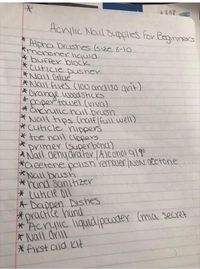 Acrylic Nail Supplies for Beginners
* Alpha brushes (size 8-10
* monomer liquid
* buffer block
* cuticle pusher
* Nail Glue
* Nail files (100 and 180 grit)
* Orange woodsticks
* paper towel (viva)
* acrylic nail brush
* Nail tips (half/full well)
* cuticle nippers
* toe nail clippers
* primer (superbond)
* Nail dehydrator / Alcohol 91%
* acetone polish remover / non acetone
* Nail brush
* hand sanitizer
* cuticle oil
* Dappen Dishes
* practice hand
* Acrylic liquid/powder (mia secret
* Nail drill
* First aid kit